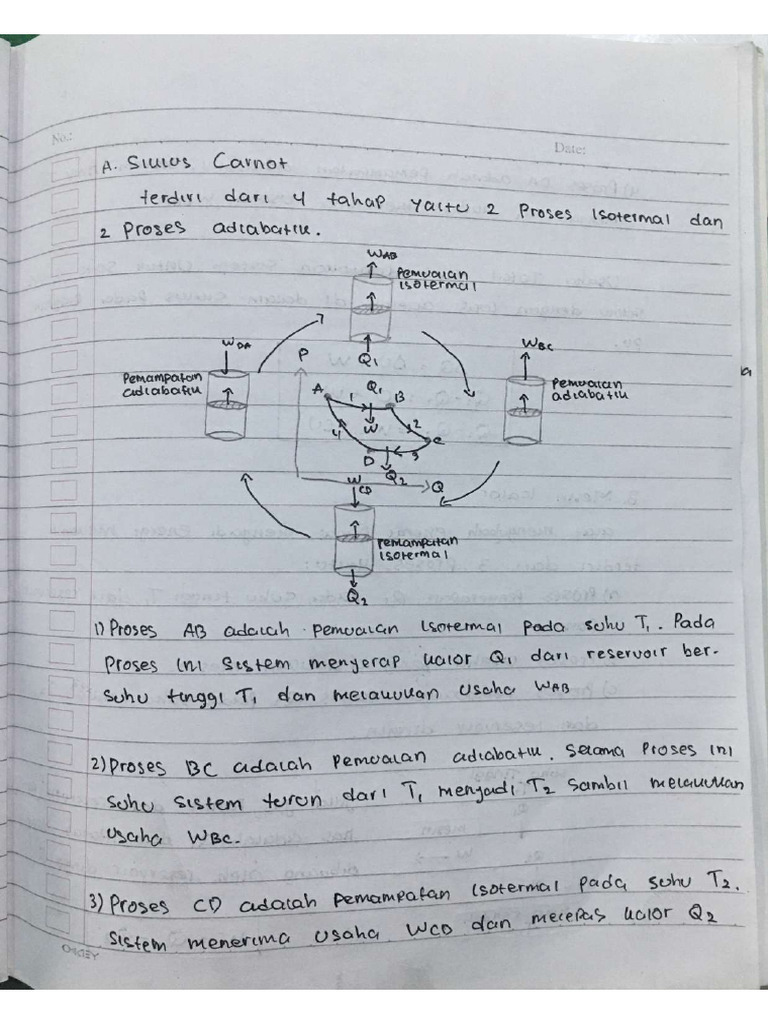 No.:
Date:
A. Siklus Carnot
terdiri dari 4 tahap yaitu 2 Proses Isotermal dan
2 Proses adiabatik.
WAB
Pemuaian
Isotermal
Q1
WDA
Pemampatan
adiabatik
WBC
Pemuaian
adiabatik
P
A
Q1
B
1
W
2
4
C
3
D
Q2
Q
WCD
Pemampatan
Isotermal
Q2
1) Proses AB adalah pemuaian Isotermal pada suhu T1. Pada
Proses ini sistem menyerap kalor Q1 dari reservoir ber-
suhu tinggi T1 dan melakukan usaha WAB
2) Proses BC adalah pemuaian adiabatik. Selama Proses ini
suhu sistem turun dari T1 menjadi T2 sambil melakukan
usaha WBC.
3) Proses CD adalah pemampatan Isotermal pada suhu T2.
sistem menerima usaha WCD dan melepas kalor Q2